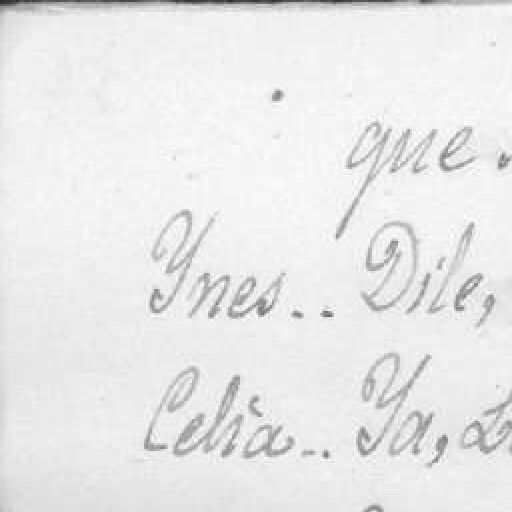 que.
Ynes.. Dile,
Celia.. Ya,